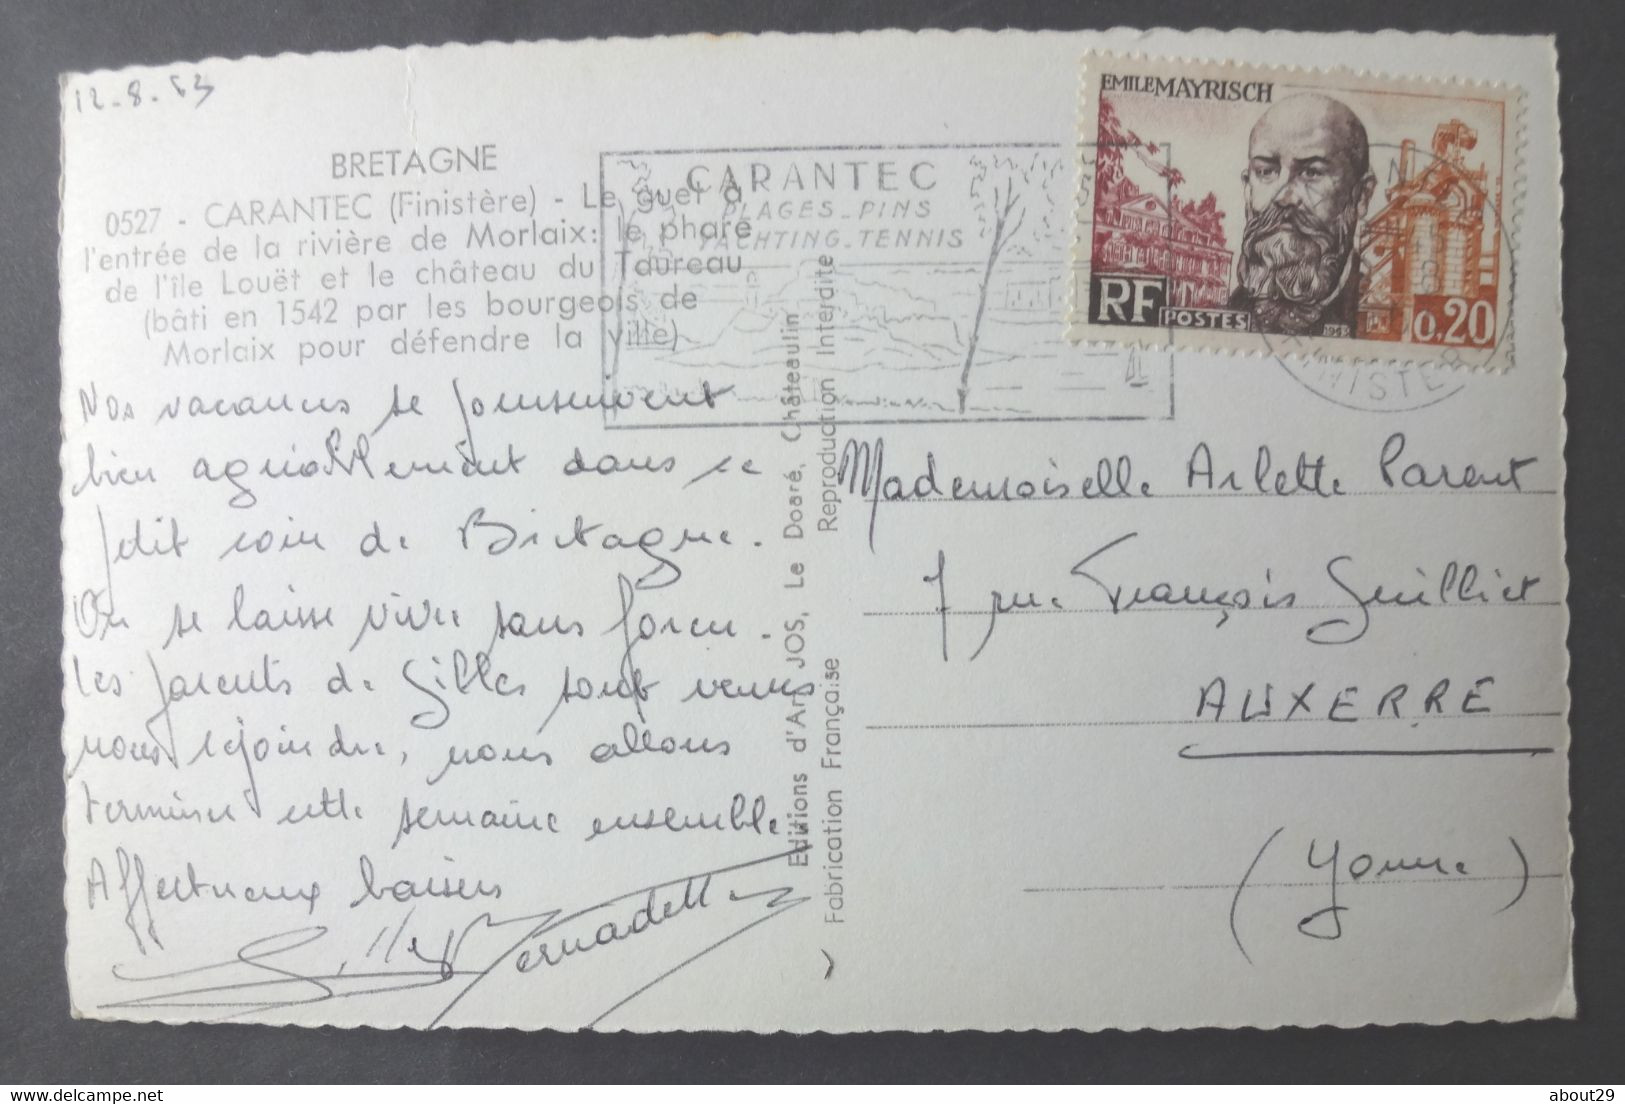 12.8.63
BRETAGNE
0527 - CARANTEC (Finistère) - Le guet à
l'entrée de la rivière de Morlaix: le phare
de l'île Louët et le château du Taureau
(bâti en 1542 par les bourgeois de
Morlaix pour défendre la ville)
CARANTEC
PLAGES_PINS
YACHTING_TENNIS
EMILE MAYRISCH
RF POSTES 1963 0,20
FINISTERE
Nos vacances se poursuivent
bien agréablement dans ce
petit coin de Bretagne.
On se laisse vivre sans forcer.
Les parents de Gilles sont venus
nous rejoindre, nous allons
terminer cette semaine ensemble.
Affectueux baisers
Gilles Bernadette
Editions d'Art JOS, Le Doaré, Châteaulin
Fabrication Française Reproduction Interdite
Mademoiselle Arlette Parent
7 rue François Guilliet
AUXERRE
(Yonne)
about29